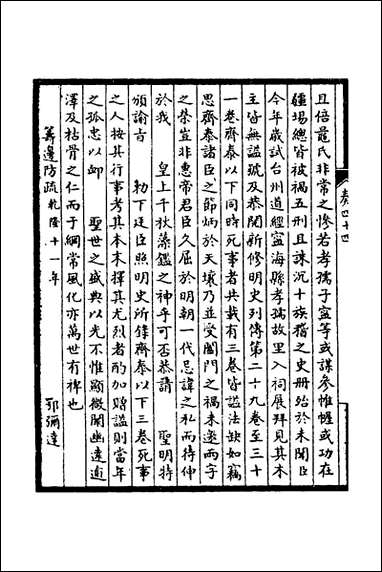 且倍黽氏非常之慘若孝孺子寧等或謀參帷幄或功在
疆場總皆被禍五刑且誅沉十族稽之史冊始於未聞臣
今年歲試台州道經寧海縣孝孺故里入祠展拜見其木
主皆無諡號及恭閱新修明史列傳第二十九卷至三十
一卷齊泰以下同時死事者共載有三卷皆諡法缺如竊
思齊泰諸臣之節炳於天壤乃並受闔門之禍未邀兩字
之榮豈非惠帝君臣久屈於明朝一代忌諱之私而待伸
於我 皇上千秋藻鑑之神乎可否恭請 聖明特
頒諭旨 勅下廷臣照明史所錄齊泰以下三卷死事
之人按其行事考其本末擇其尤烈者酌加贈諡則當年
之孤忠以卹 聖世之盛典以光不惟顯微闡幽遠追
澤及枯骨之仁而于綱常風化亦萬世有裨也
籌邊防疏 乾隆十一年 鄂彌達
奏 四十四